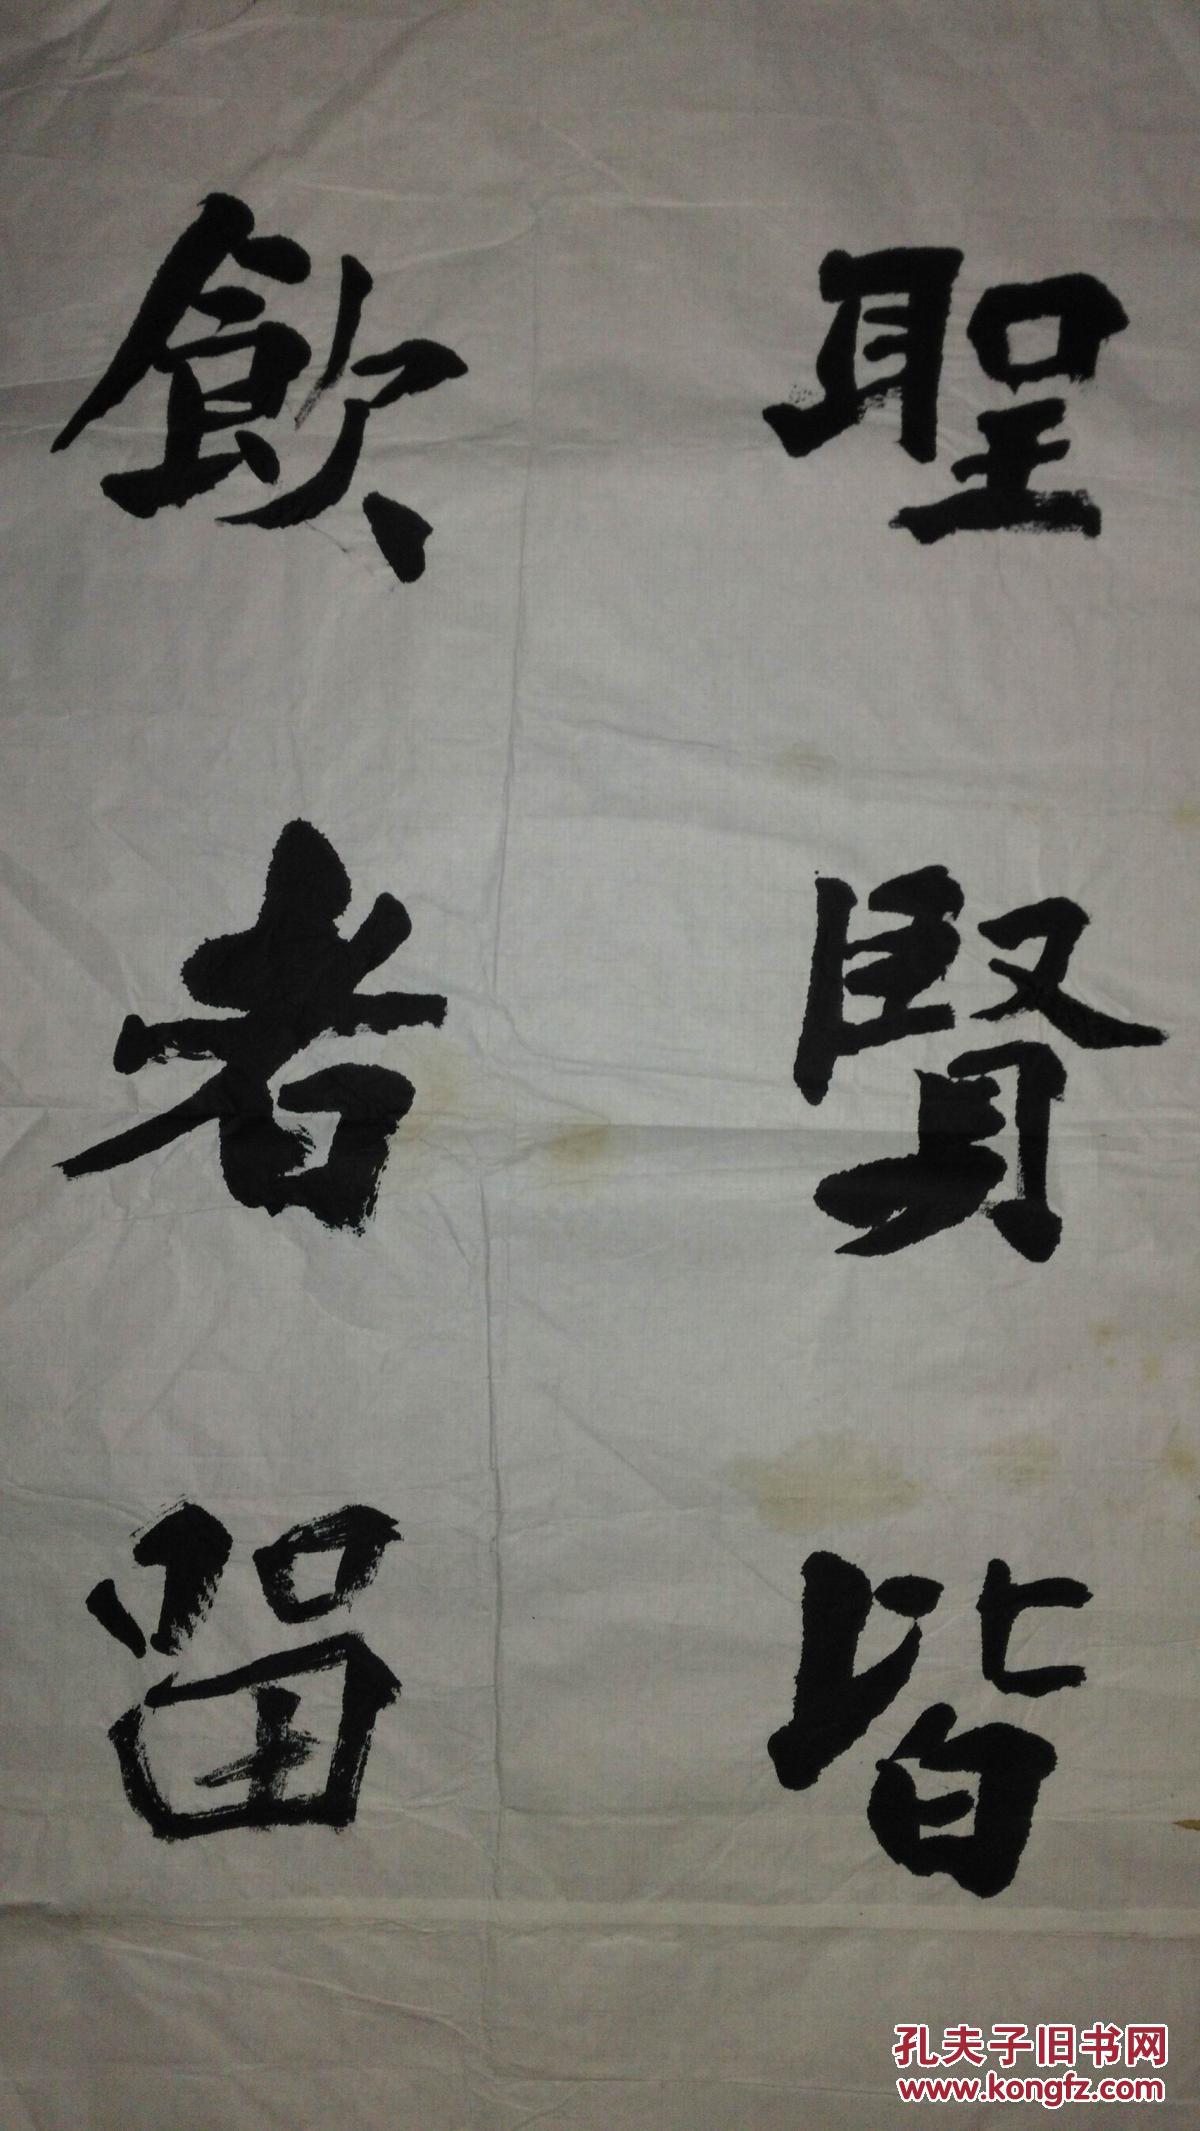 聖賢皆
飲者留
孔夫子旧书网
www.kongfz.com